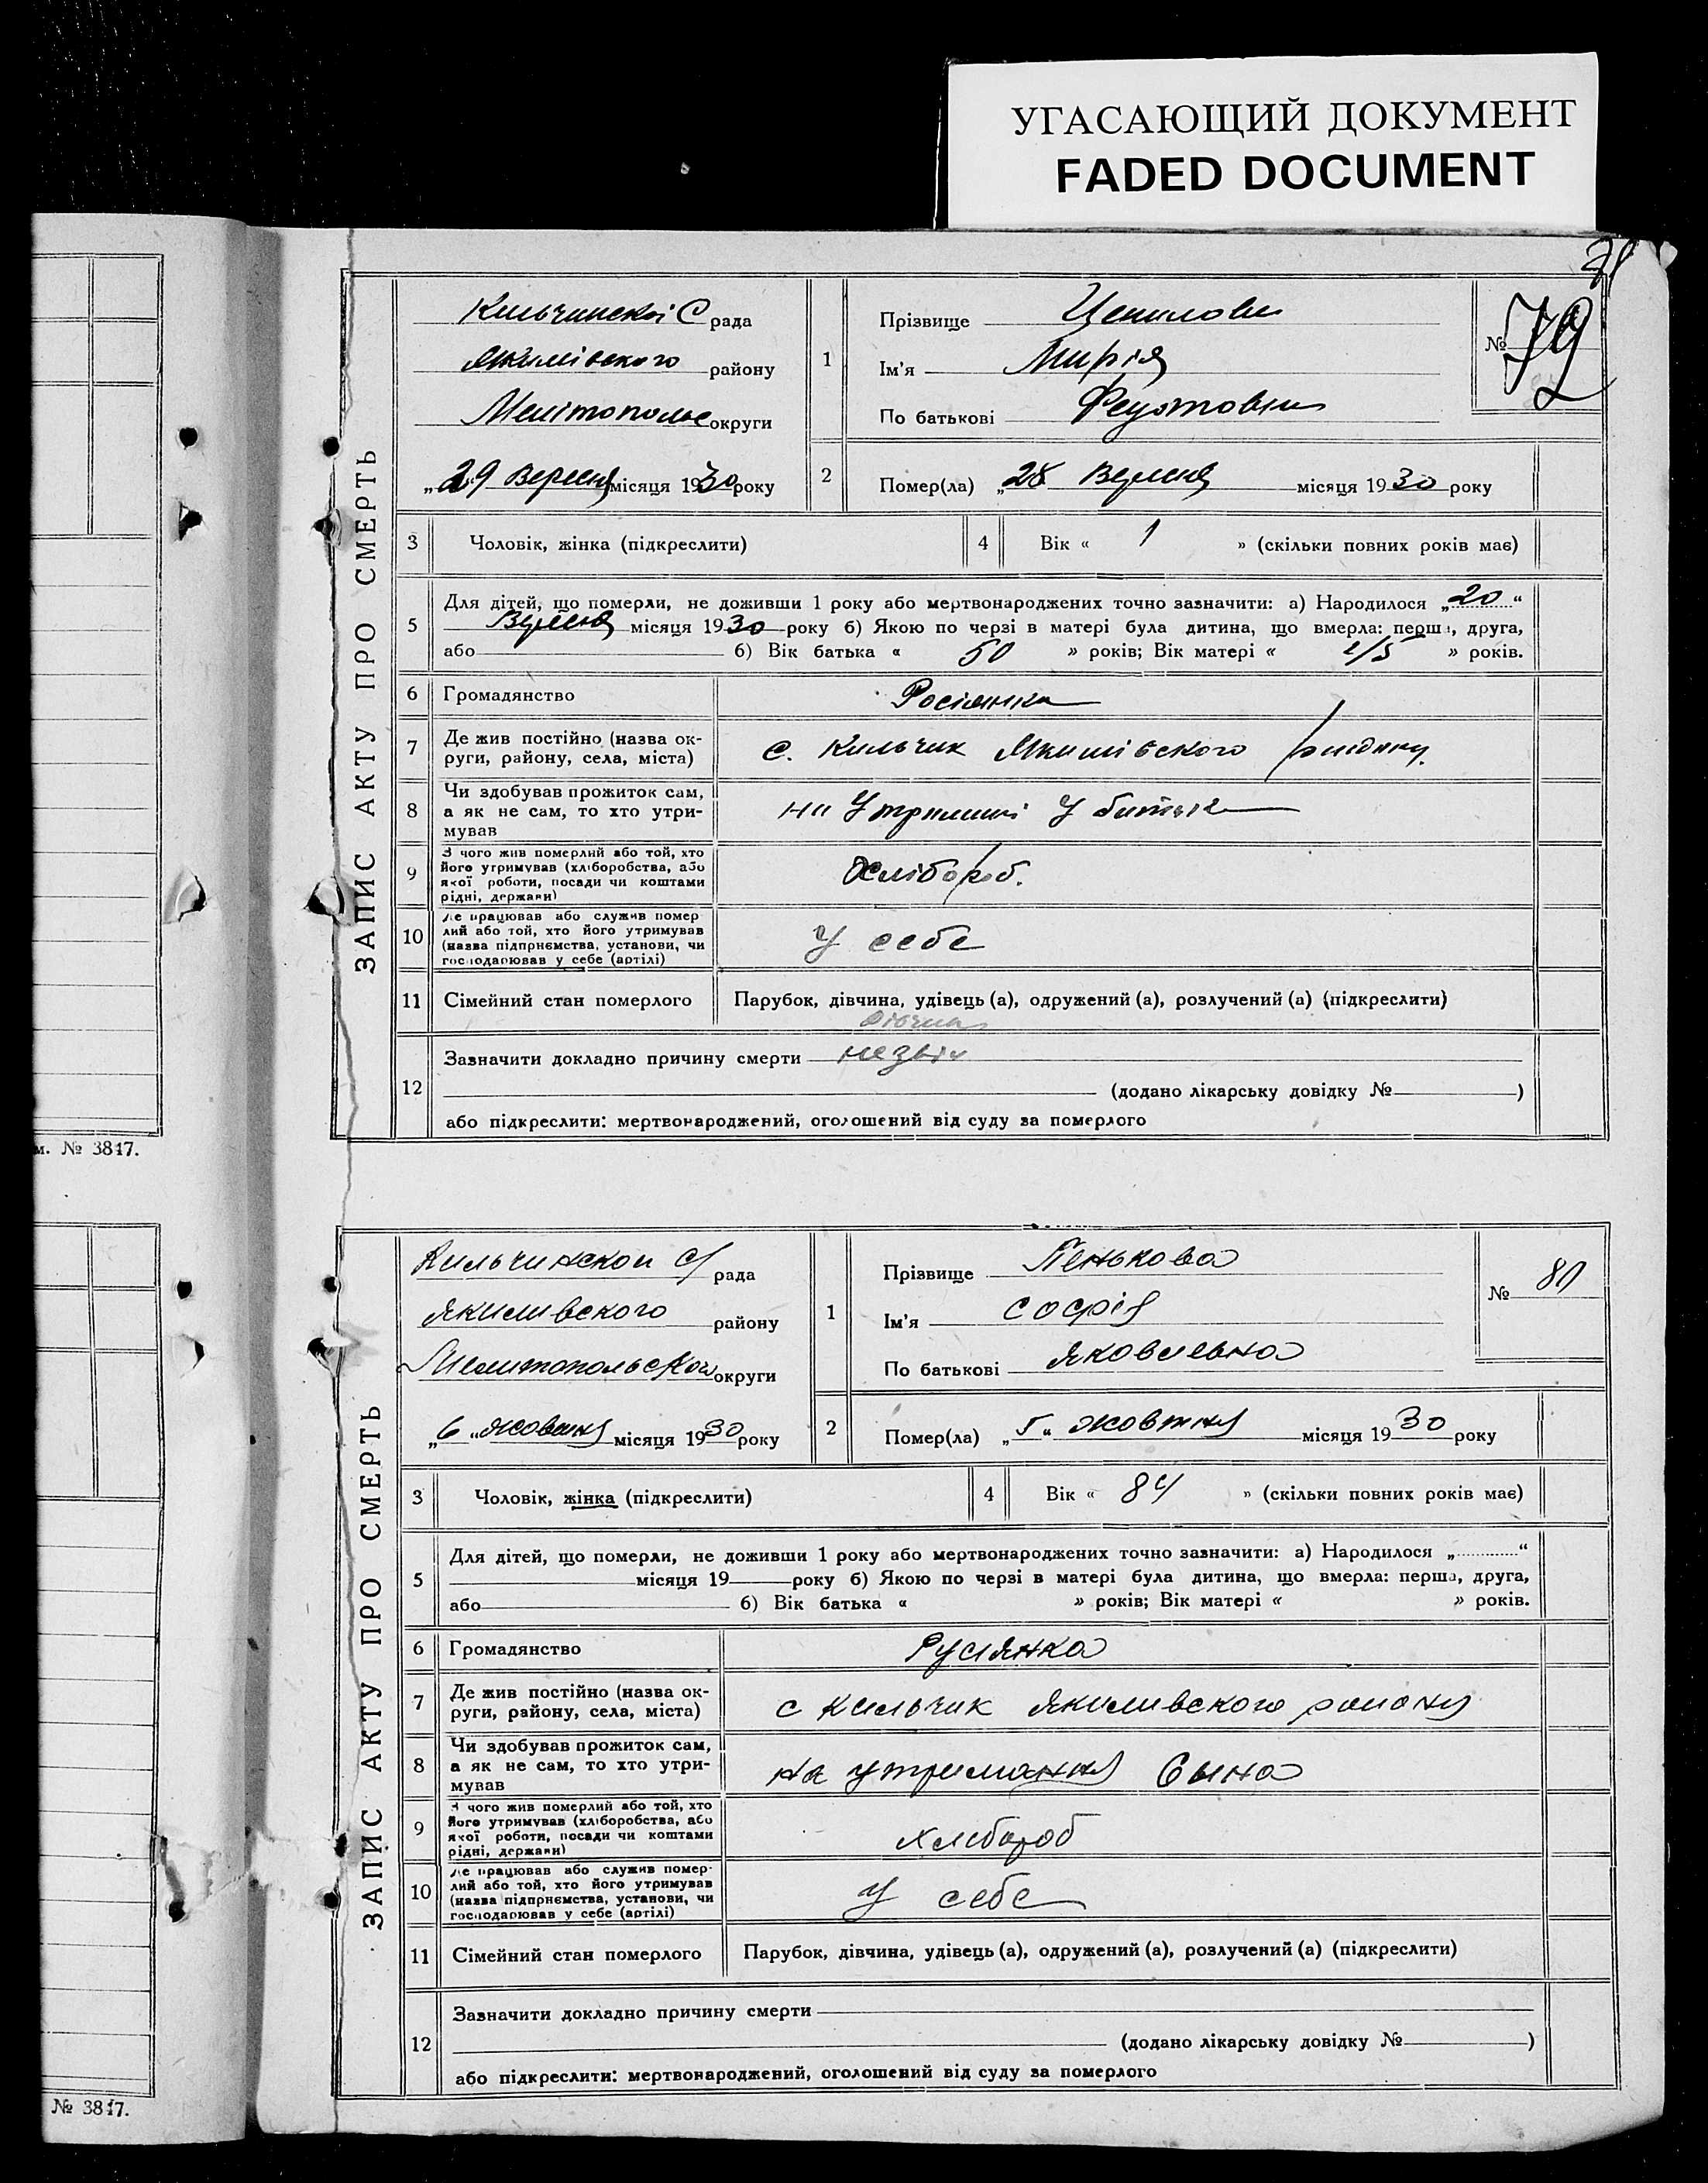 УГАСАЮЩИЙ ДОКУМЕНТ
FADED DOCUMENT
ЗАПИС АКТУ ПРО СМЕРТЬ
Кильчинскої С рада
Якимівского району
Мелітопольс округи
„29 Вересня місяця 1930 року
1
Прізвище
Ім'я Марія
По батькові
№ 79
2 Помер(ла) „28 Вересня місяця 1930 року
3 Чоловік, жінка (підкреслити)
4 Вік « 1 » (скільки повних років має)
5 Для дітей, що померли, не доживши 1 року або мертвонароджених точно зазначити: а) Народилося „20“
Вересня місяця 1930 року б) Якою по черзі в матері була дитина, що вмерла: перша, друга,
або б) Вік батька « 50 » років; Вік матері « » років.
6 Громадянство Росіянка
7 Де жив постійно (назва ок-
руги, району, села, міста) с. Кильчик Якимівского району.
8 Чи здобував прожиток сам,
а як не сам, то хто утри-
мував на Утриманні У батька
9 З чого жив померлий або той, хто
його утримував (хліборобства, або
якої роботи, посади чи коштами
рідні, держави) Хлібороб.
10 Де працював або служив помер
лий або той, хто його утримував
(назва підприємства, установи, чи
господарював у себе (артілі) У себе
11 Сімейний стан померлого Парубок, дівчина, удівець (а), одружений (а), розлучений (а) (підкреслити)
дівчина
12 Зазначити докладно причину смерти
(додано лікарську довідку № )
або підкреслити: мертвонароджений, оголошений від суду за померлого
м. № 3817.
ЗАПИС АКТУ ПРО СМЕРТЬ
Кильчинской С/ рада
Якимивского району
Мелитопольского округи
„6„ жовтня місяця 1930 року
1
Прізвище Пенькова
Ім'я Софія
По батькові Яковлевна
№ 80
2 Помер(ла) „5“ жовтня місяця 1930 року
3 Чоловік, жінка (підкреслити)
4 Вік « 84 » (скільки повних років має)
5 Для дітей, що померли, не доживши 1 року або мертвонароджених точно зазначити: а) Народилося „ “
місяця 19 року б) Якою по черзі в матері була дитина, що вмерла: перша, друга,
або б) Вік батька « » років; Вік матері « » років.
6 Громадянство Русіянка
7 Де жив постійно (назва ок-
руги, району, села, міста) с Кильчик Якимивского району
8 Чи здобував прожиток сам,
а як не сам, то хто утри-
мував на утримання Сына
9 З чого жив померлий або той, хто
його утримував (хліборобства, або
якої роботи, посади чи коштами
рідні, держави) хлебороб
10 Де працював або служив помер-
лий або той, хто його утримував
(назва підприємства, установи, чи
господарював у себе (артілі) У себе
11 Сімейний стан померлого Парубок, дівчина, удівець (а), одружений (а), розлучений (а) (підкреслити)
12 Зазначити докладно причину смерти
(додано лікарську довідку № )
або підкреслити: мертвонароджений, оголошений від суду за померлого
№ 3817.